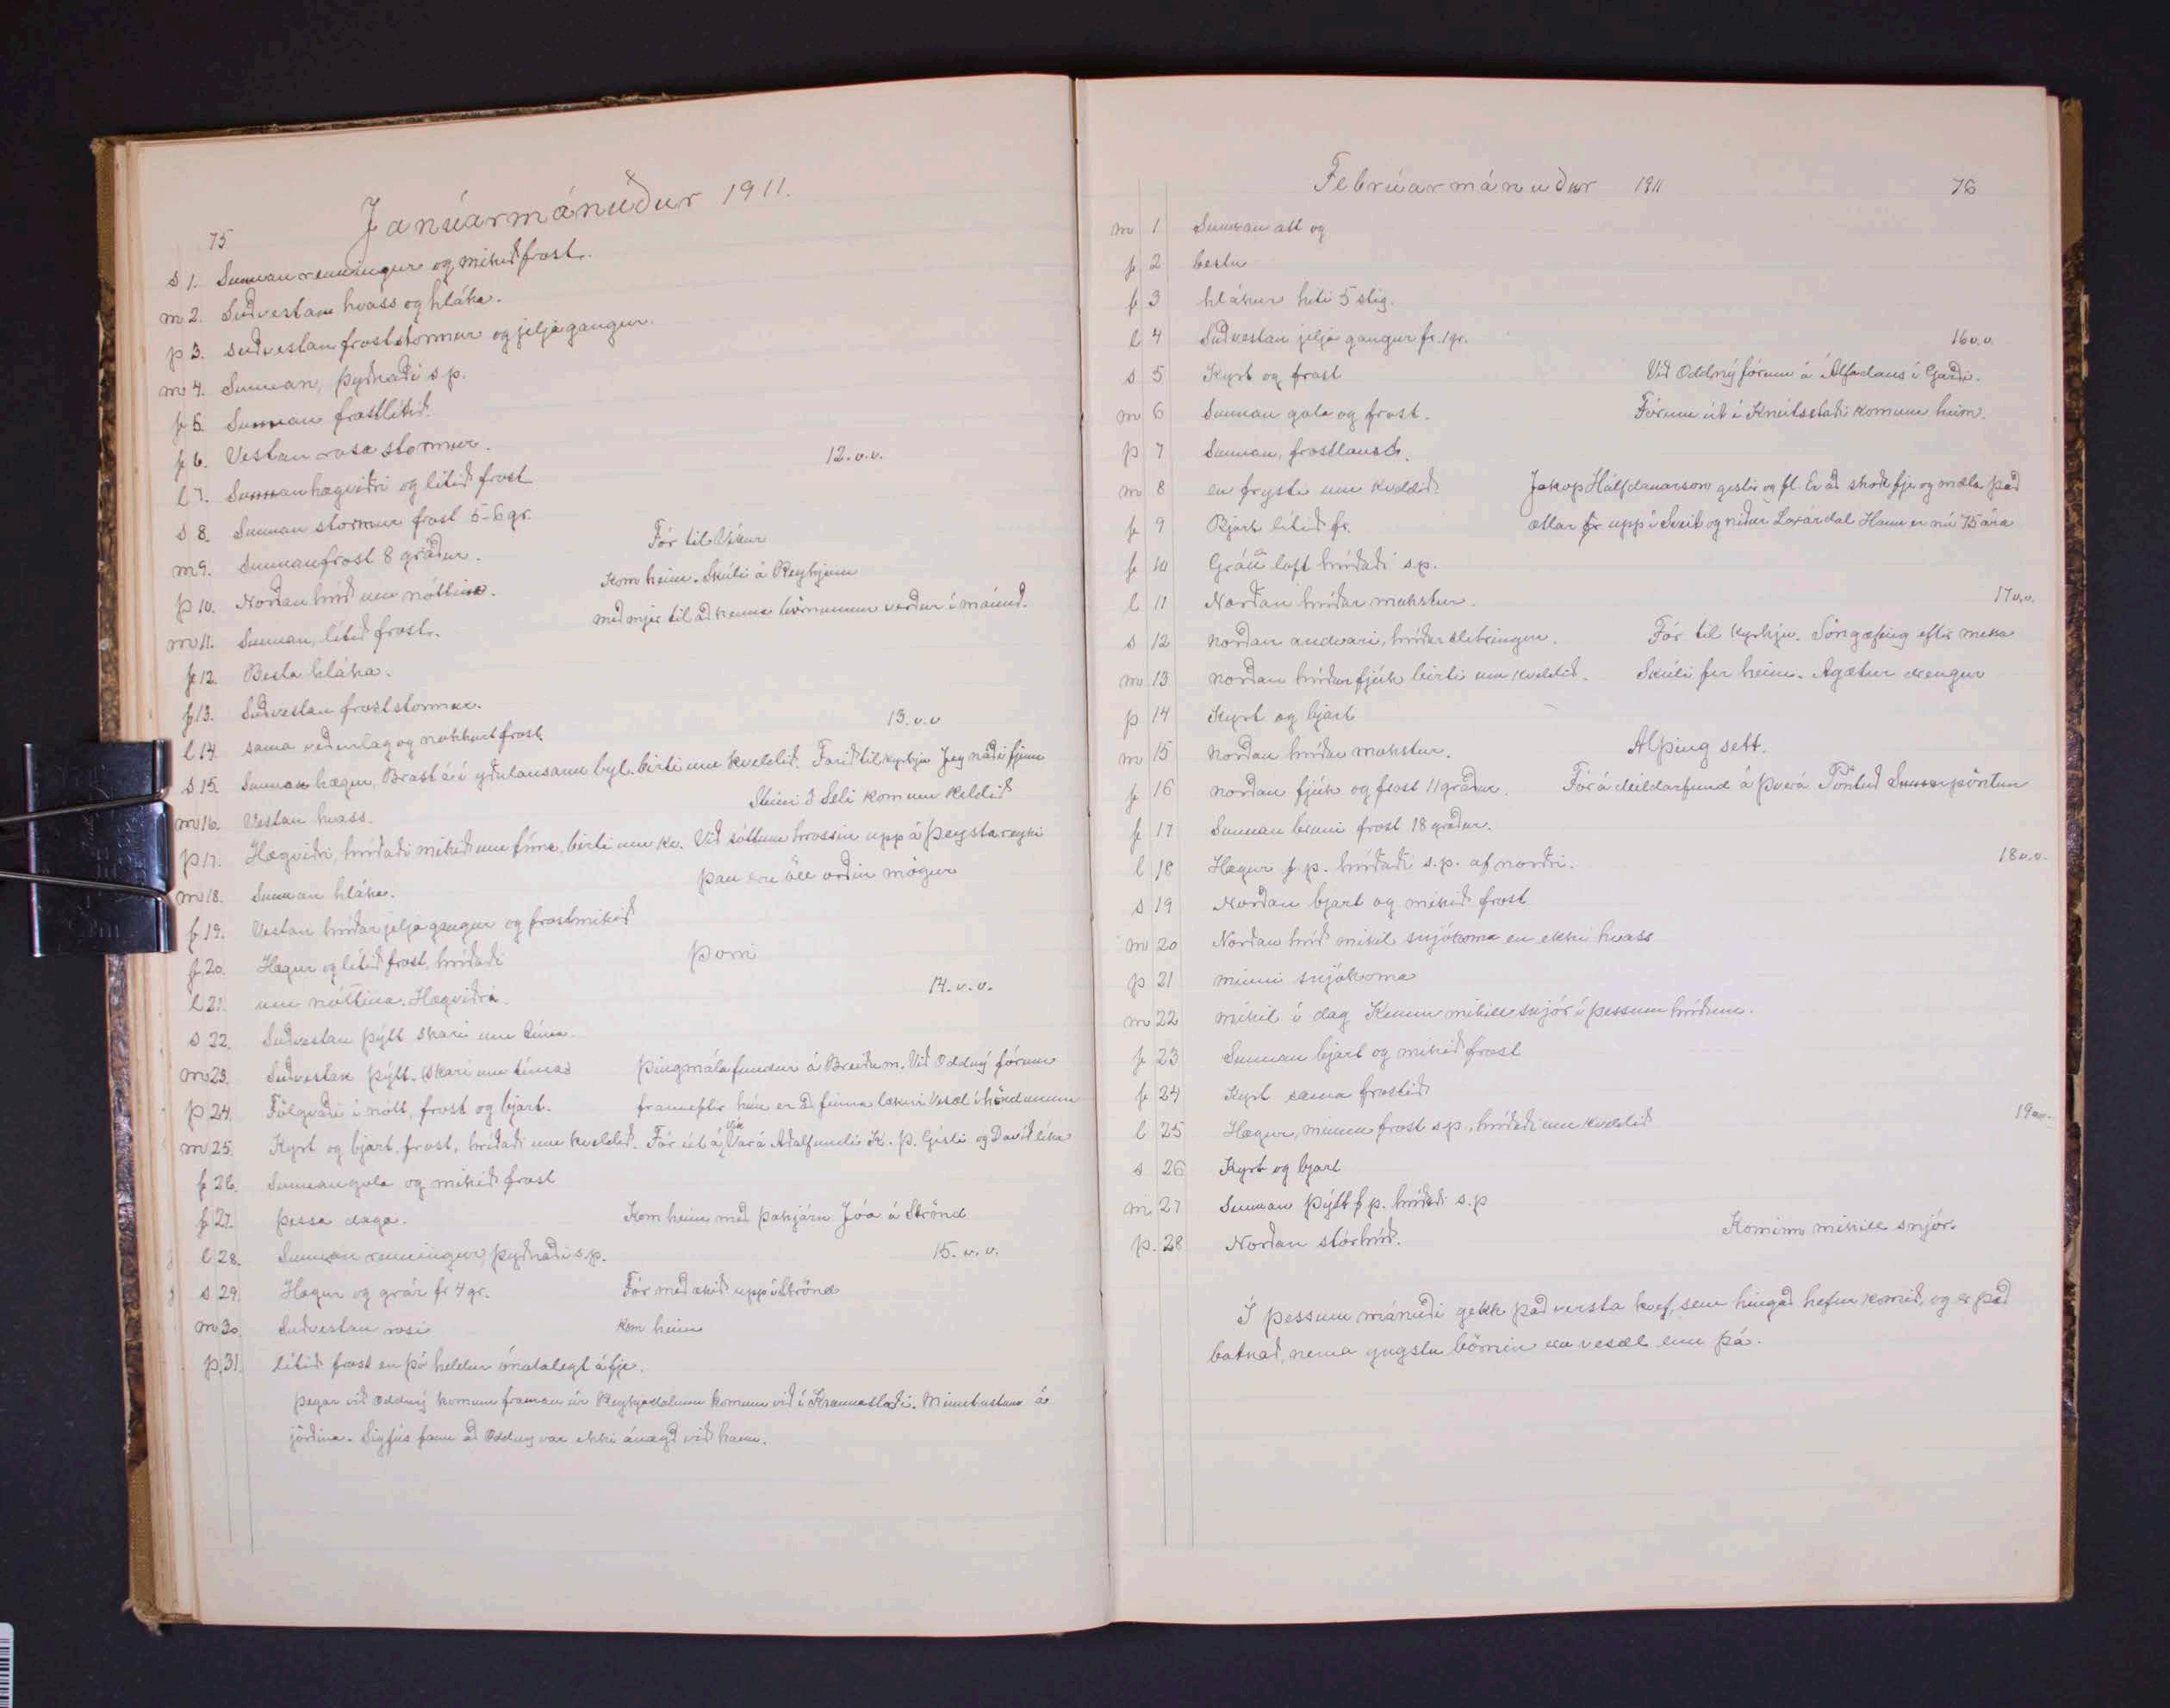 75
Janúarmánuður 1911.
s 1. Sunnan renningur og mikið frost.
m 2. Suðvestan hvass og hláka.
þ 3. suðvestan froststormur og jeljagangur.
m 4. Sunnan, þyðnaði s p.
f 5. Sunnan frostlítið.
f 6. Vestan rosa stormur.
12. v. v.
l 7. Sunnan hægviðri og lítið frost
s 8. Sunnan stormur frost 5-6 gr.
m 9. Sunnanfrost 8 gráður. Fór til Víkur
þ 10. Norðan hríð um nóttina. Kom heim. Skúli á Reykjum
m 11. Sunnan, lítið frost. með mjer til að kenna börnunum verður í mánuð.
f 12. Besta hláka.
f 13. Suðvestan froststormur.
13. v. v
l 14. sama veðurlag og nokkurt frost
s 15. Sunnan hægur, Brast á í yðulausann byl. birti um kveldið. Farið til kyrkju Jeg náði fjenu
m 16. Vestan hvass. Steini í Seli kom um keldið
þ 17. Hægviðri, hríðaði mikið um tíma, birti um kv. Við sóttum hrossin upp á Þeystareyki
m 18. Sunnan hláka. þau eru öll orðin mögur
f 19. Vestan hríðarjeljagangur og frostmikið
f 20. Hægur og lítið frost, hríðaði
l 21. um nóttina. Hægviðri.
14. v. v.
s 22. Suðvestan þýtt skari um tíma.
m 23. Suðvestan þýtt. skari um tíma Þingmálafundur á Breiðum. Við Oddný fórum
þ 24. Fölgvaði í nótt, frost og bjart. frameftir hún er að finna lækni Vesæl í höndunum
m 25. Kyrt og bjart, frost, hríðaði um kveldið. Fór út á Vík Var á Aðalfundi K. Þ. Gísli og Davíð líka
f 26. Sunnangola og mikið frost
f 27. þessa daga. Kom heim með þakjárn Jóa á Strönd
l 28. Sunnan renningur, þyðnaði s.p. 15. v. v.
s 29. Hægur og grár fr 4 gr. Fór með ækið upp í Strönd
m 30. Suðvestan rosi kom heim
þ. 31. lítið frost en þó heldur ónotalegt á fje.
Þegar við Oddný komum framan úr Reykjadalnum komum við í Hrannastaði. Minntustum á
jörðina. Sigfús fann að Oddný var ekki ánægð við hann.
Febrúarmánuður 1911
76
m 1 Sunnan átt og
f 2 bestu
f 3 hlákur hiti 5 stig.
l 4 Suðvestan jelja gangur fr. 1 gr. 16 v. v.
s 5 Kyrt og frost Við Oddný fórum á Álfadans í Garði.
m 6 Sunnan gola og frost. Fórum út í Knútsstaði komum heim.
þ 7 Sunnan, frostlaust.
m 8 en frysti um kveldið. Jakop Hálfdanarson gestir og fl. Er að skoða fje og mæla það
f 9 Bjart lítið fr. ætlar fr upp í Sveit og niður Laxárdal Hann er nú 75 ára
f 10 Gráa loft hríðaði s.p.
l 11 Norðan hríðar mokstur. 17 v. v.
s 12 norðan andvari, hríðarslitringur. Fór til kyrkju. Söngæfing eftir messu
m 13 norðan hríðarfjúk birti um kveldið. Skúli fer heim. Ágætur drengur
þ 14 Kyrt og bjart
m 15 norðan hríðar mokstur. Alþing sett.
f 16 norðan fjúk og frost 11 gráður. Fór á deildarfund á Þverá Pöntuð Sumarpöntun
f 17 Sunnan bruni frost 18 gráður.
l 18 Hægur f p. hríðaði s.p. af norðri. 18 v. v.
s 19 Norðan bjart og mikið frost
m 20 Norðan hríð mikil snjókoma en ekki hvass
þ 21 minni snjókoma
m 22 mikil í dag Kemur mikill snjór í þessum hríðum.
f 23 Sunnan bjart og mikið frost
f 24 Kyrt sama frostið
l 25 Hægur, minna frost s p, hríðaði um kveldið 19 v.v.
s 26 Kyrt og bjart
m 27 Sunnan þýtt f p. hríðaði s.p
þ. 28 Norðan stórhríð. Kominn mikill snjór.
Í þessum mánuði gekk það versta kvef, sem hingað hefur komið, og er það
batnað, nema yngstu börnin eru vesæl enn þá.